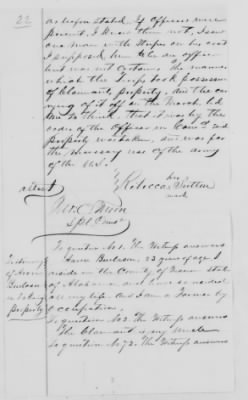 22
as before stated. If officers were
present, I knew them not, I saw
one man with the Stripes on his coat
I supposed him to be an officer
but was not certain. The manner
which the troops took possession
of Claimants property, and the car-
rying of it off on the March led
me to think, that it was by the
order of the Officer in Com'd and
property was taken, and was for
the necessary use of the army
of the U.S.
her
Rebecca
mark
attest
Spl Com'r
Testimony
of
as to taking
Property
To question No 1. The Witness answers
23 years of age I
reside in the County of state
of Alabama and have so resided
all my life and I am a Farmer by
occupation.
To question No 2. The Witness answers
The Claimant is my Uncle
To question No 72. The Witness answers